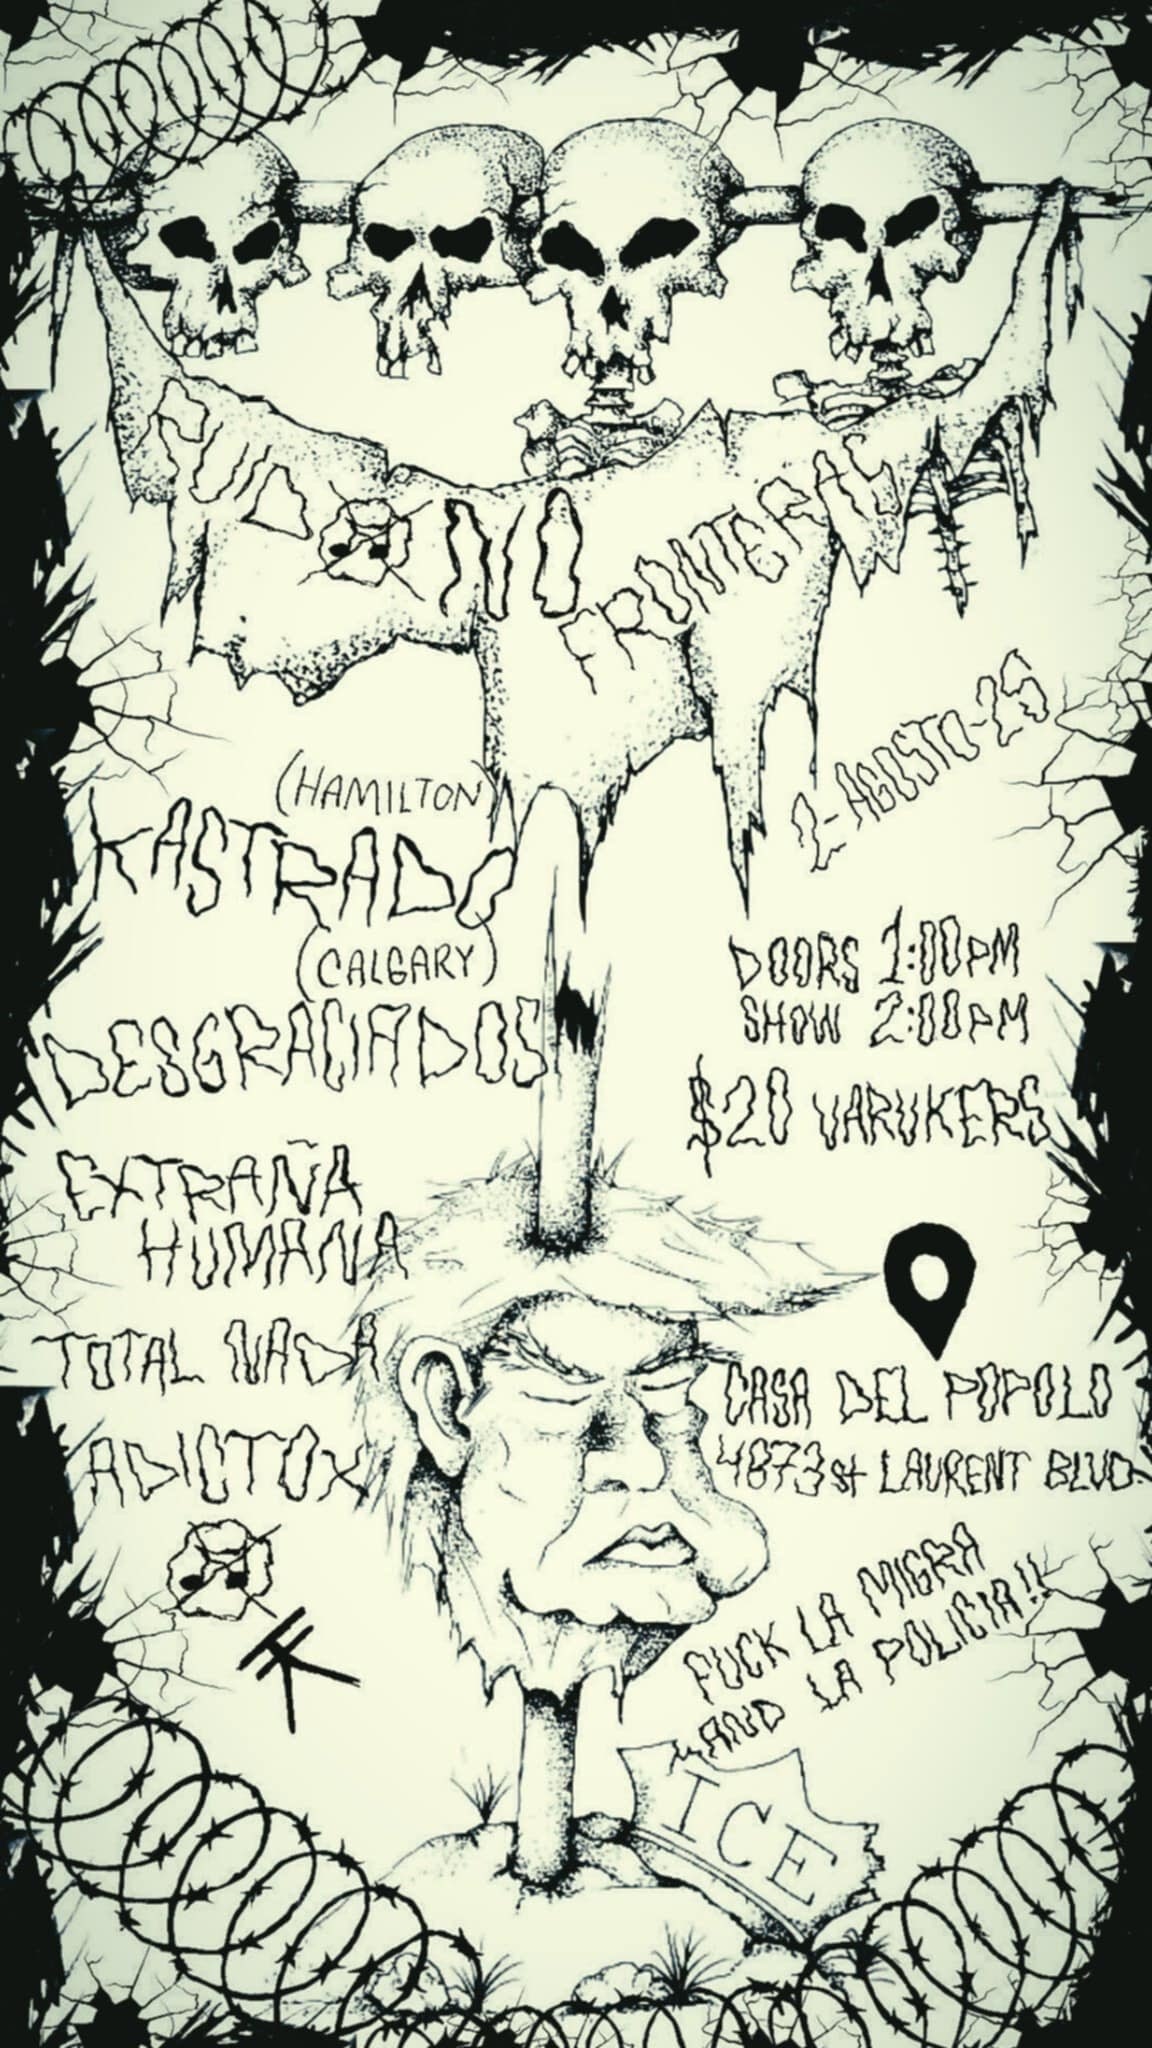 RUIDO NO
FRONTERAS
2-AGOSTO-25
(HAMILTON)
KASTRADO
(CALGARY)
DESGRACIADOS
EXTRAÑA
HUMANA
TOTAL NADA
ADICTOX
DOORS 1:00PM
SHOW 2:00PM
$20 VARUKERS
CASA DEL POPOLO
4873 St LAURENT BLVD.
FUCK LA MIGRA
AND LA POLICIA!!
ICE